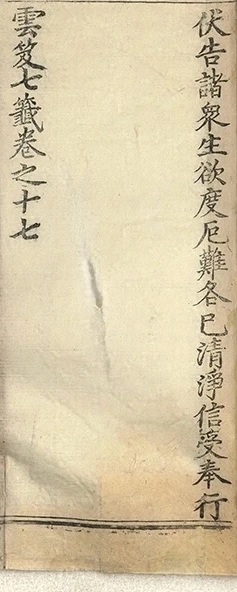 伏告諸衆生欲度厄難各已清淨信受奉行
雲笈七籤卷之十七